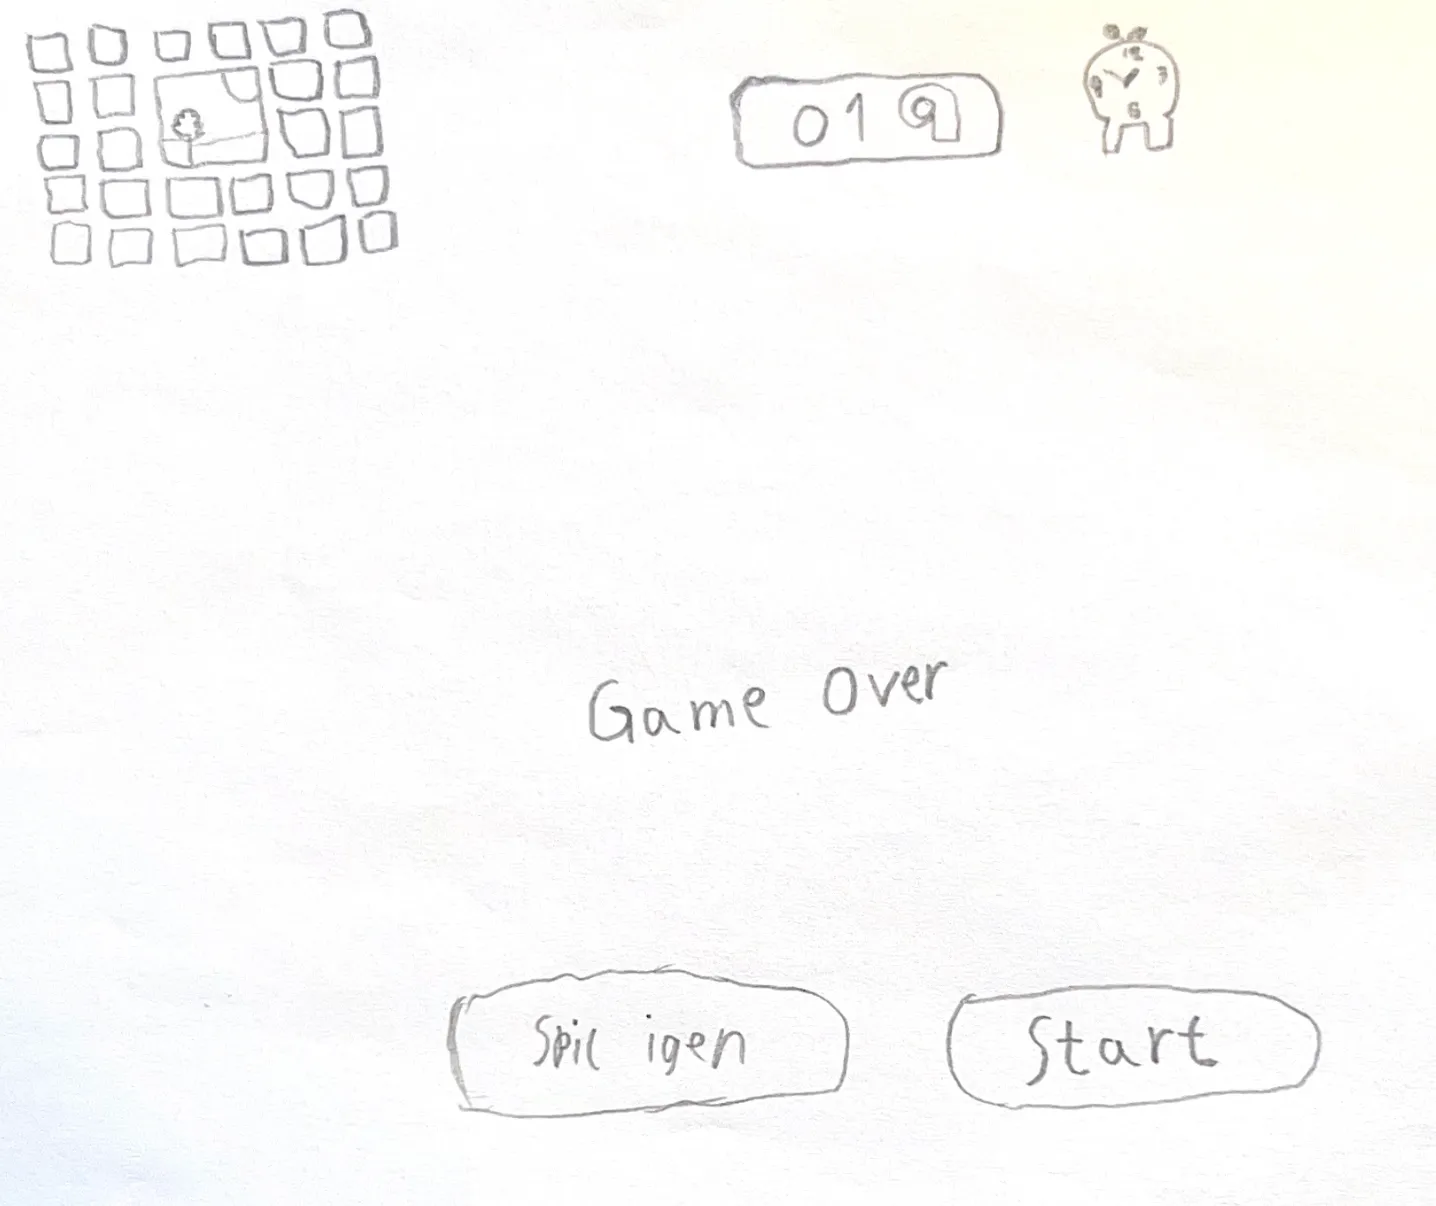 019
12
9 3
6
Game Over
Spil igen
Start